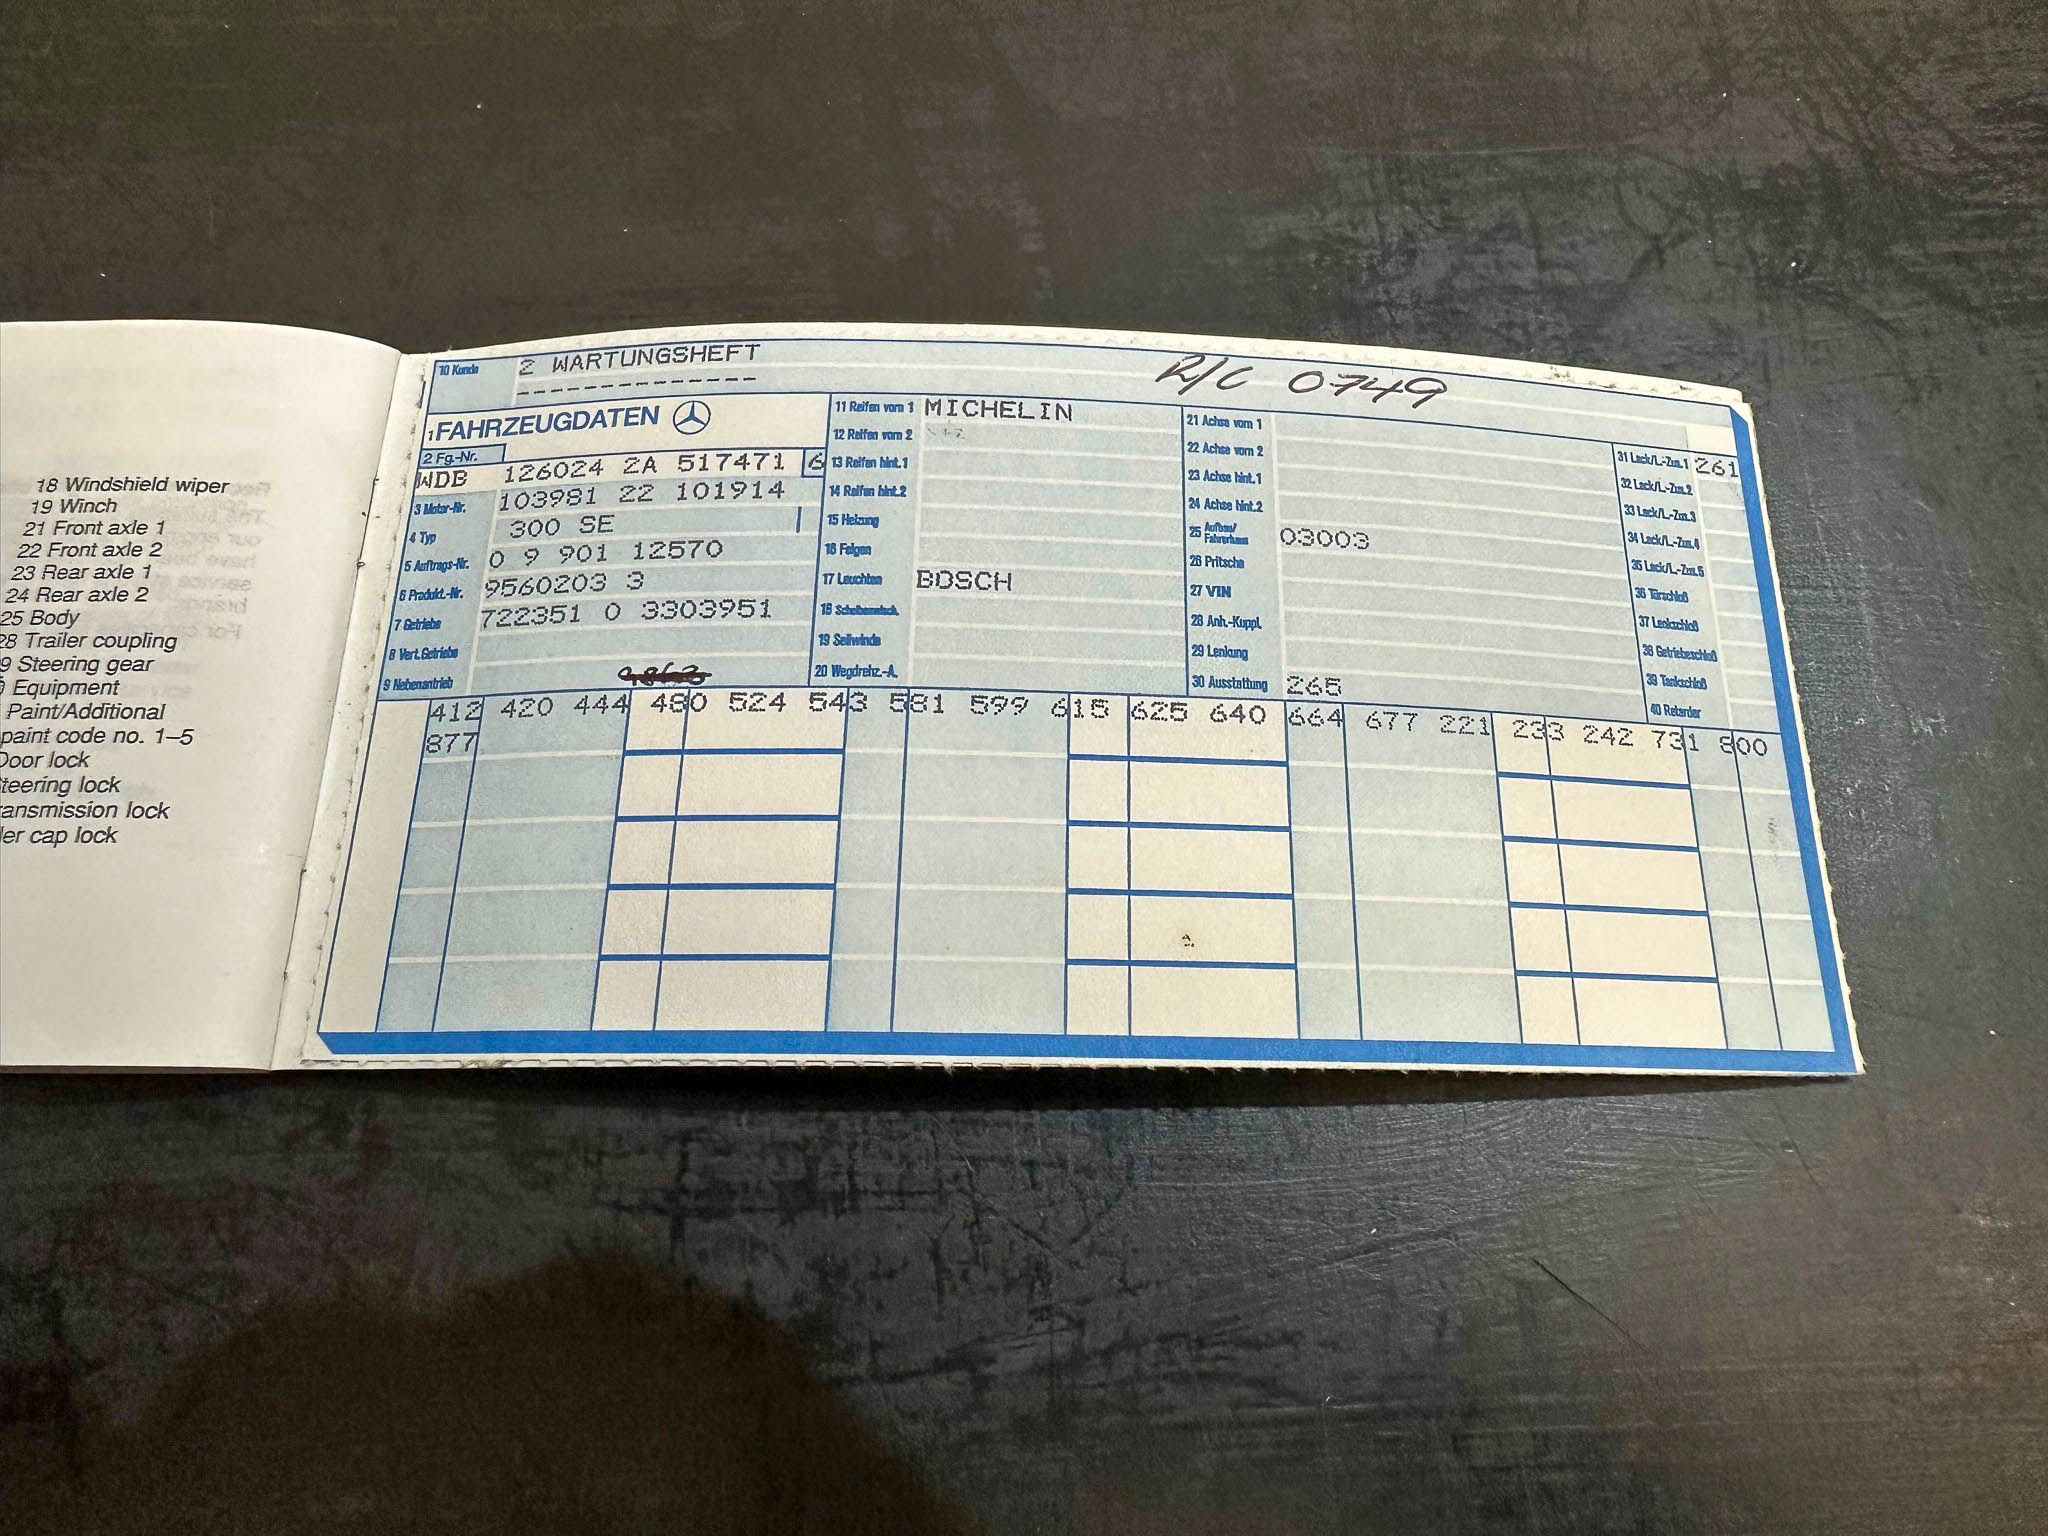 18 Windshield wiper
19 Winch
21 Front axle 1
22 Front axle 2
23 Rear axle 1
24 Rear axle 2
25 Body
28 Trailer coupling
9 Steering gear
Equipment
Paint/Additional
paint code no. 1–5
Door lock
teering lock
ansmission lock
ler cap lock
10 Kunde
2 WARTUNGSHEFT
--------------
R/C 0749
1 FAHRZEUGDATEN
2 Fg.-Nr.
WDB 126024 2A 517471 6
3 Motor-Nr. 103981 22 101914
4 Typ 300 SE
5 Auftrags-Nr. 0 9 901 12570
6 Produkt.-Nr. 9560203 3
7 Getriebe 722351 0 3303951
8 Vert.Getriebe
9 Nebenantrieb
11 Reifen vorn 1 MICHELIN
12 Reifen vorn 2
13 Reifen hint.1
14 Reifen hint.2
15 Heizung
16 Felgen
17 Leuchten BOSCH
18 Scheibenwisch.
19 Seilwinde
20 Wegdrehz.-A.
21 Achse vorn 1
22 Achse vorn 2
23 Achse hint.1
24 Achse hint.2
25 Aufbau/ Fahrerhaus 03003
26 Pritsche
27 VIN
28 Anh.-Kuppl.
29 Lenkung
30 Ausstattung 265
31 Lack/L.-Zus.1 261
32 Lack/L.-Zus.2
33 Lack/L.-Zus.3
34 Lack/L.-Zus.4
35 Lack/L.-Zus.5
36 Türschloß
37 Lenkschloß
38 Getriebeschloß
39 Tankschloß
40 Retarder
412 420 444 480 524 543 581 599 615 625 640 664 677 221 233 242 731 800
877